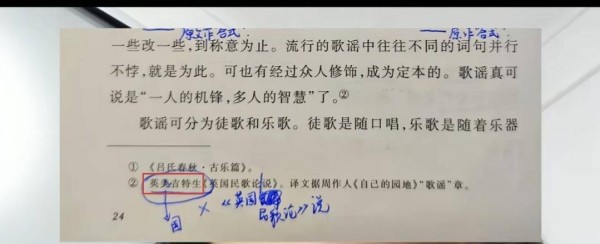 原文作合式
原作合式
一些改一些,到称意为止。流行的歌谣中往往不同的词句并行
不悖,就是为此。可也有经过众人修饰,成为定本的。歌谣真可
说是“一人的机锋,多人的智慧”了。②
歌谣可分为徒歌和乐歌。徒歌是随口唱,乐歌是随着乐器
① 《吕氏春秋·古乐篇》。
② 英美吉特生《英国民歌论说》。译文据周作人《自己的园地》“歌谣”章。
国
×《英国民歌论》说
24